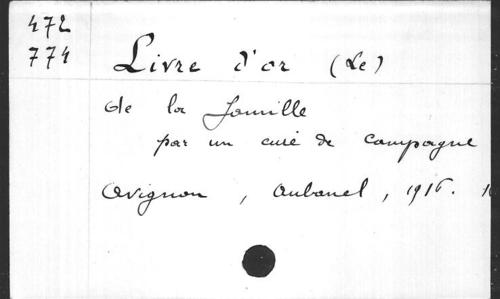 472
774
Livre d'or (Le)
de la famille
par un curé de campagne
Avignon, Aubanel, 1916.